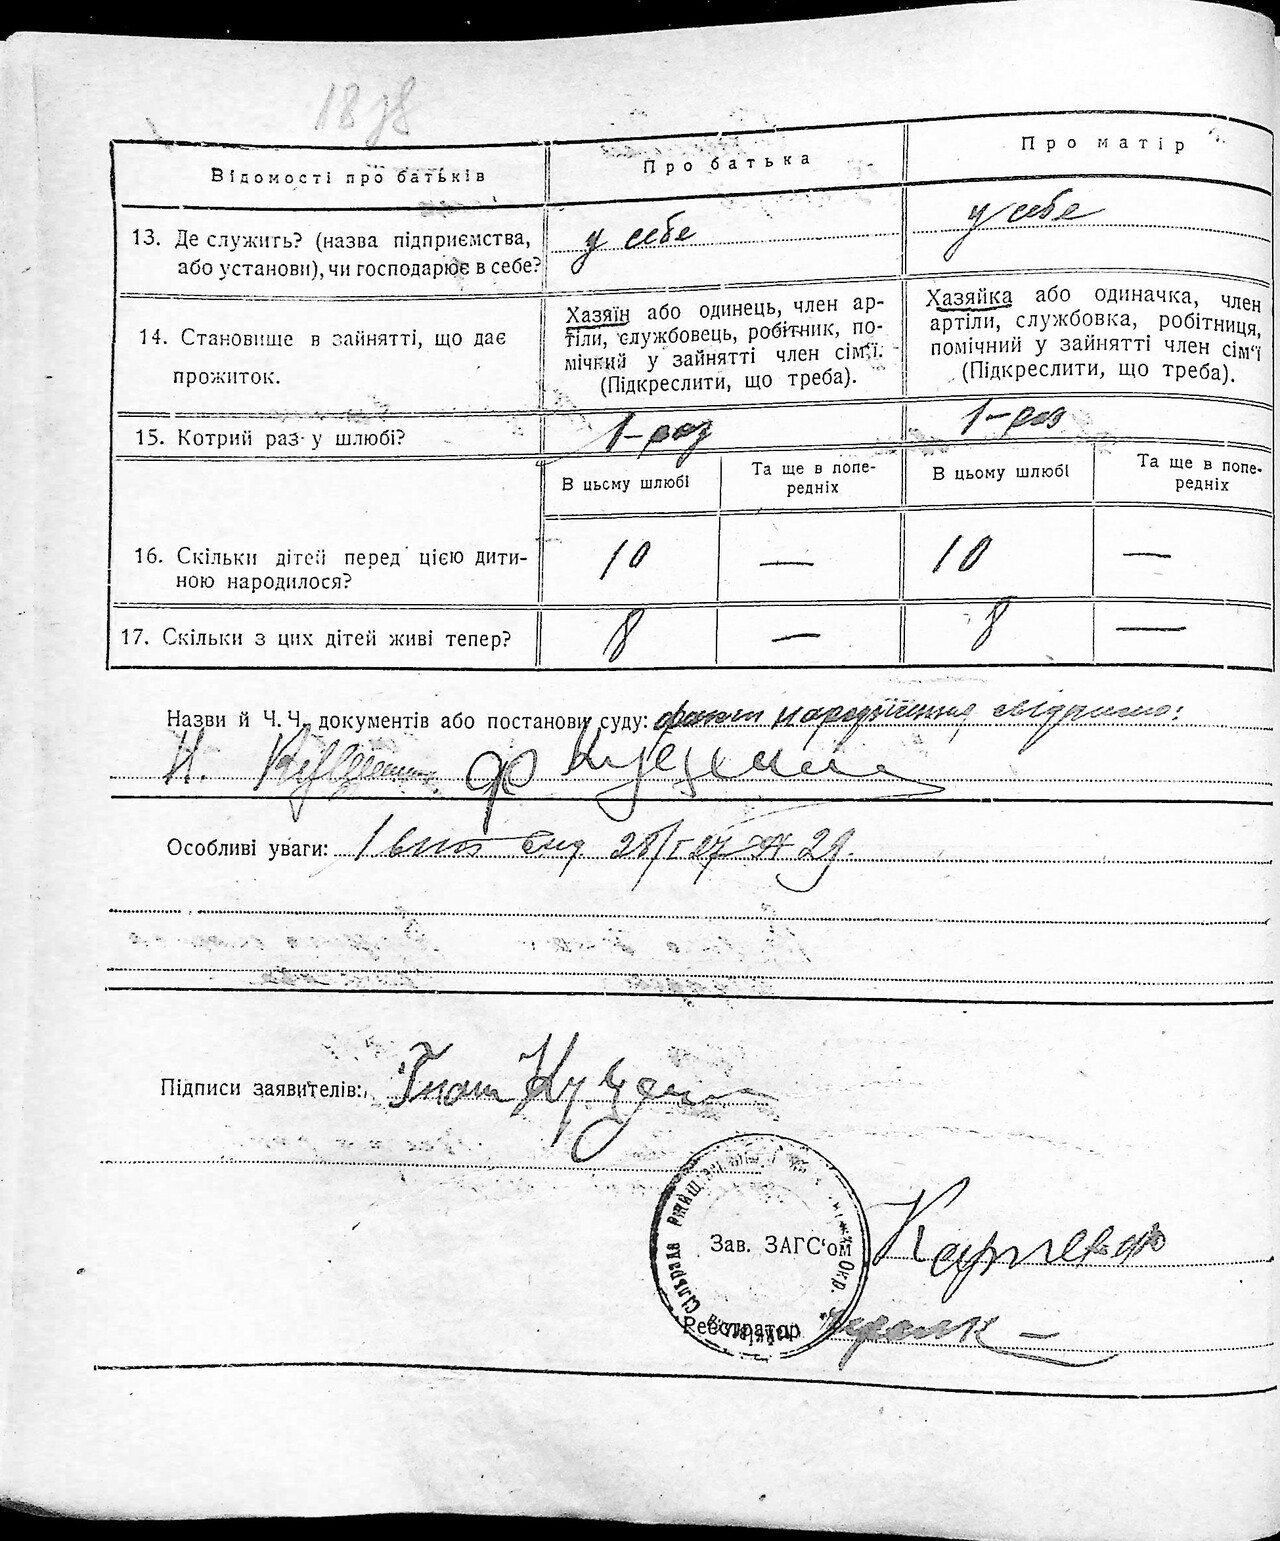 18 зв
Відомості про батьків
Про батька
Про матір
13. Де служить? (назва підприємства,
або установи), чи господарює в себе?
у себе
у себе
14. Становище в зайнятті, що дає
прожиток.
Хазяїн або одинець, член ар-
тіли, службовець, робітник, по-
мічний у зайнятті член сім'ї.
(Підкреслити, що треба).
Хазяйка або одиначка, член
артіли, службовка, робітниця,
помічний у зайнятті член сім'ї
(Підкреслити, що треба).
15. Котрий раз у шлюбі?
1-раз
1-раз
В цьому шлюбі
Та ще в попе-
редніх
В цьому шлюбі
Та ще в попе-
редніх
16. Скільки дітей перед цією дити-
ною народилося?
10
—
10
—
17. Скільки з цих дітей живі тепер?
8
—
8
—
Назви й Ч. Ч. документів або постанови суду: факт народження свідчимо:
Особливі уваги:
Підписи заявителів:
Сільрада
Окр.
Зав. ЗАГС'ом
Реєстратор